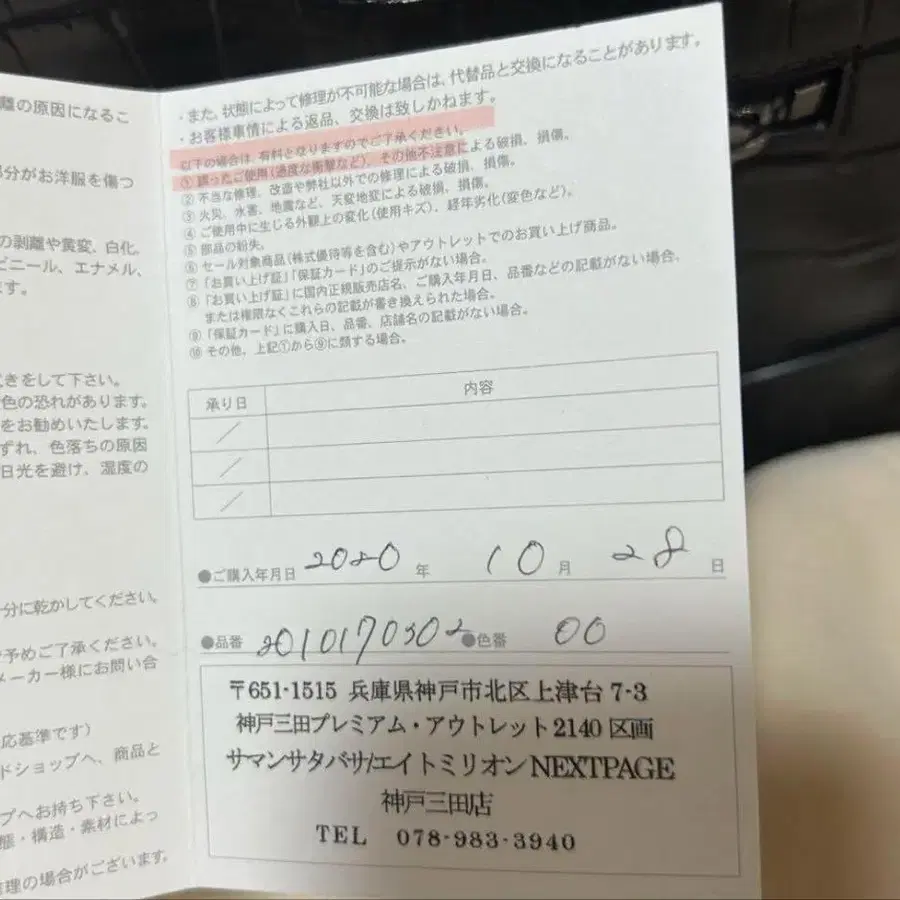 離の原因になるこ
部分がお洋服を傷つ
の剥離や黄変、白化、
ビニール、エナメル、
ます。
きをして下さい。
色の恐れがあります。
をお勧めいたします。
ずれ、色落ちの原因
日光を避け、湿度の
分に乾かしてください。
予めご了承ください。
メーカー様にお問い合
応基準です)
ドショップへ、商品と
プへお持ち下さい。
態・構造・素材によっ
修理の場合がございます。
・また、状態によって修理が不可能な場合は、代替品と交換になることがあります。
・お客様事情による返品、交換は致しかねます。
以下の場合は、有料となりますのでご了承ください。
① 誤ったご使用(過度な衝撃など)、その他不注意による破損、損傷。
② 不当な修理、改造や弊社以外での修理による破損、損傷。
③ 火災、水害、地震など、天変地変による破損、損傷。
④ ご使用中に生じる外観上の変化(使用キズ)、経年劣化(変色など)。
⑤ 部品の紛失。
⑥ セール対象商品(株式優待等を含む)やアウトレットでのお買い上げ商品。
⑦ 「お買い上げ証」「保証カード」のご提示がない場合。
⑧ 「お買い上げ証」に国内正規販売店名、ご購入年月日、品番などの記載がない場合、
または権限なくこれらの記載が書き換えられた場合。
⑨ 「保証カード」に購入日、品番、店舗名の記載がない場合。
⑩ その他、上記①から⑨に類する場合。
承り日 内容
/
/
/
●ご購入年月日 2020 年 10 月 28 日
●品番 2010170302 ●色番 00
〒651-1515 兵庫県神戸市北区上津台 7-3
神戸三田プレミアム・アウトレット2140 区画
サマンサタバサ/エイトミリオン NEXTPAGE
神戸三田店
TEL 078-983-3940